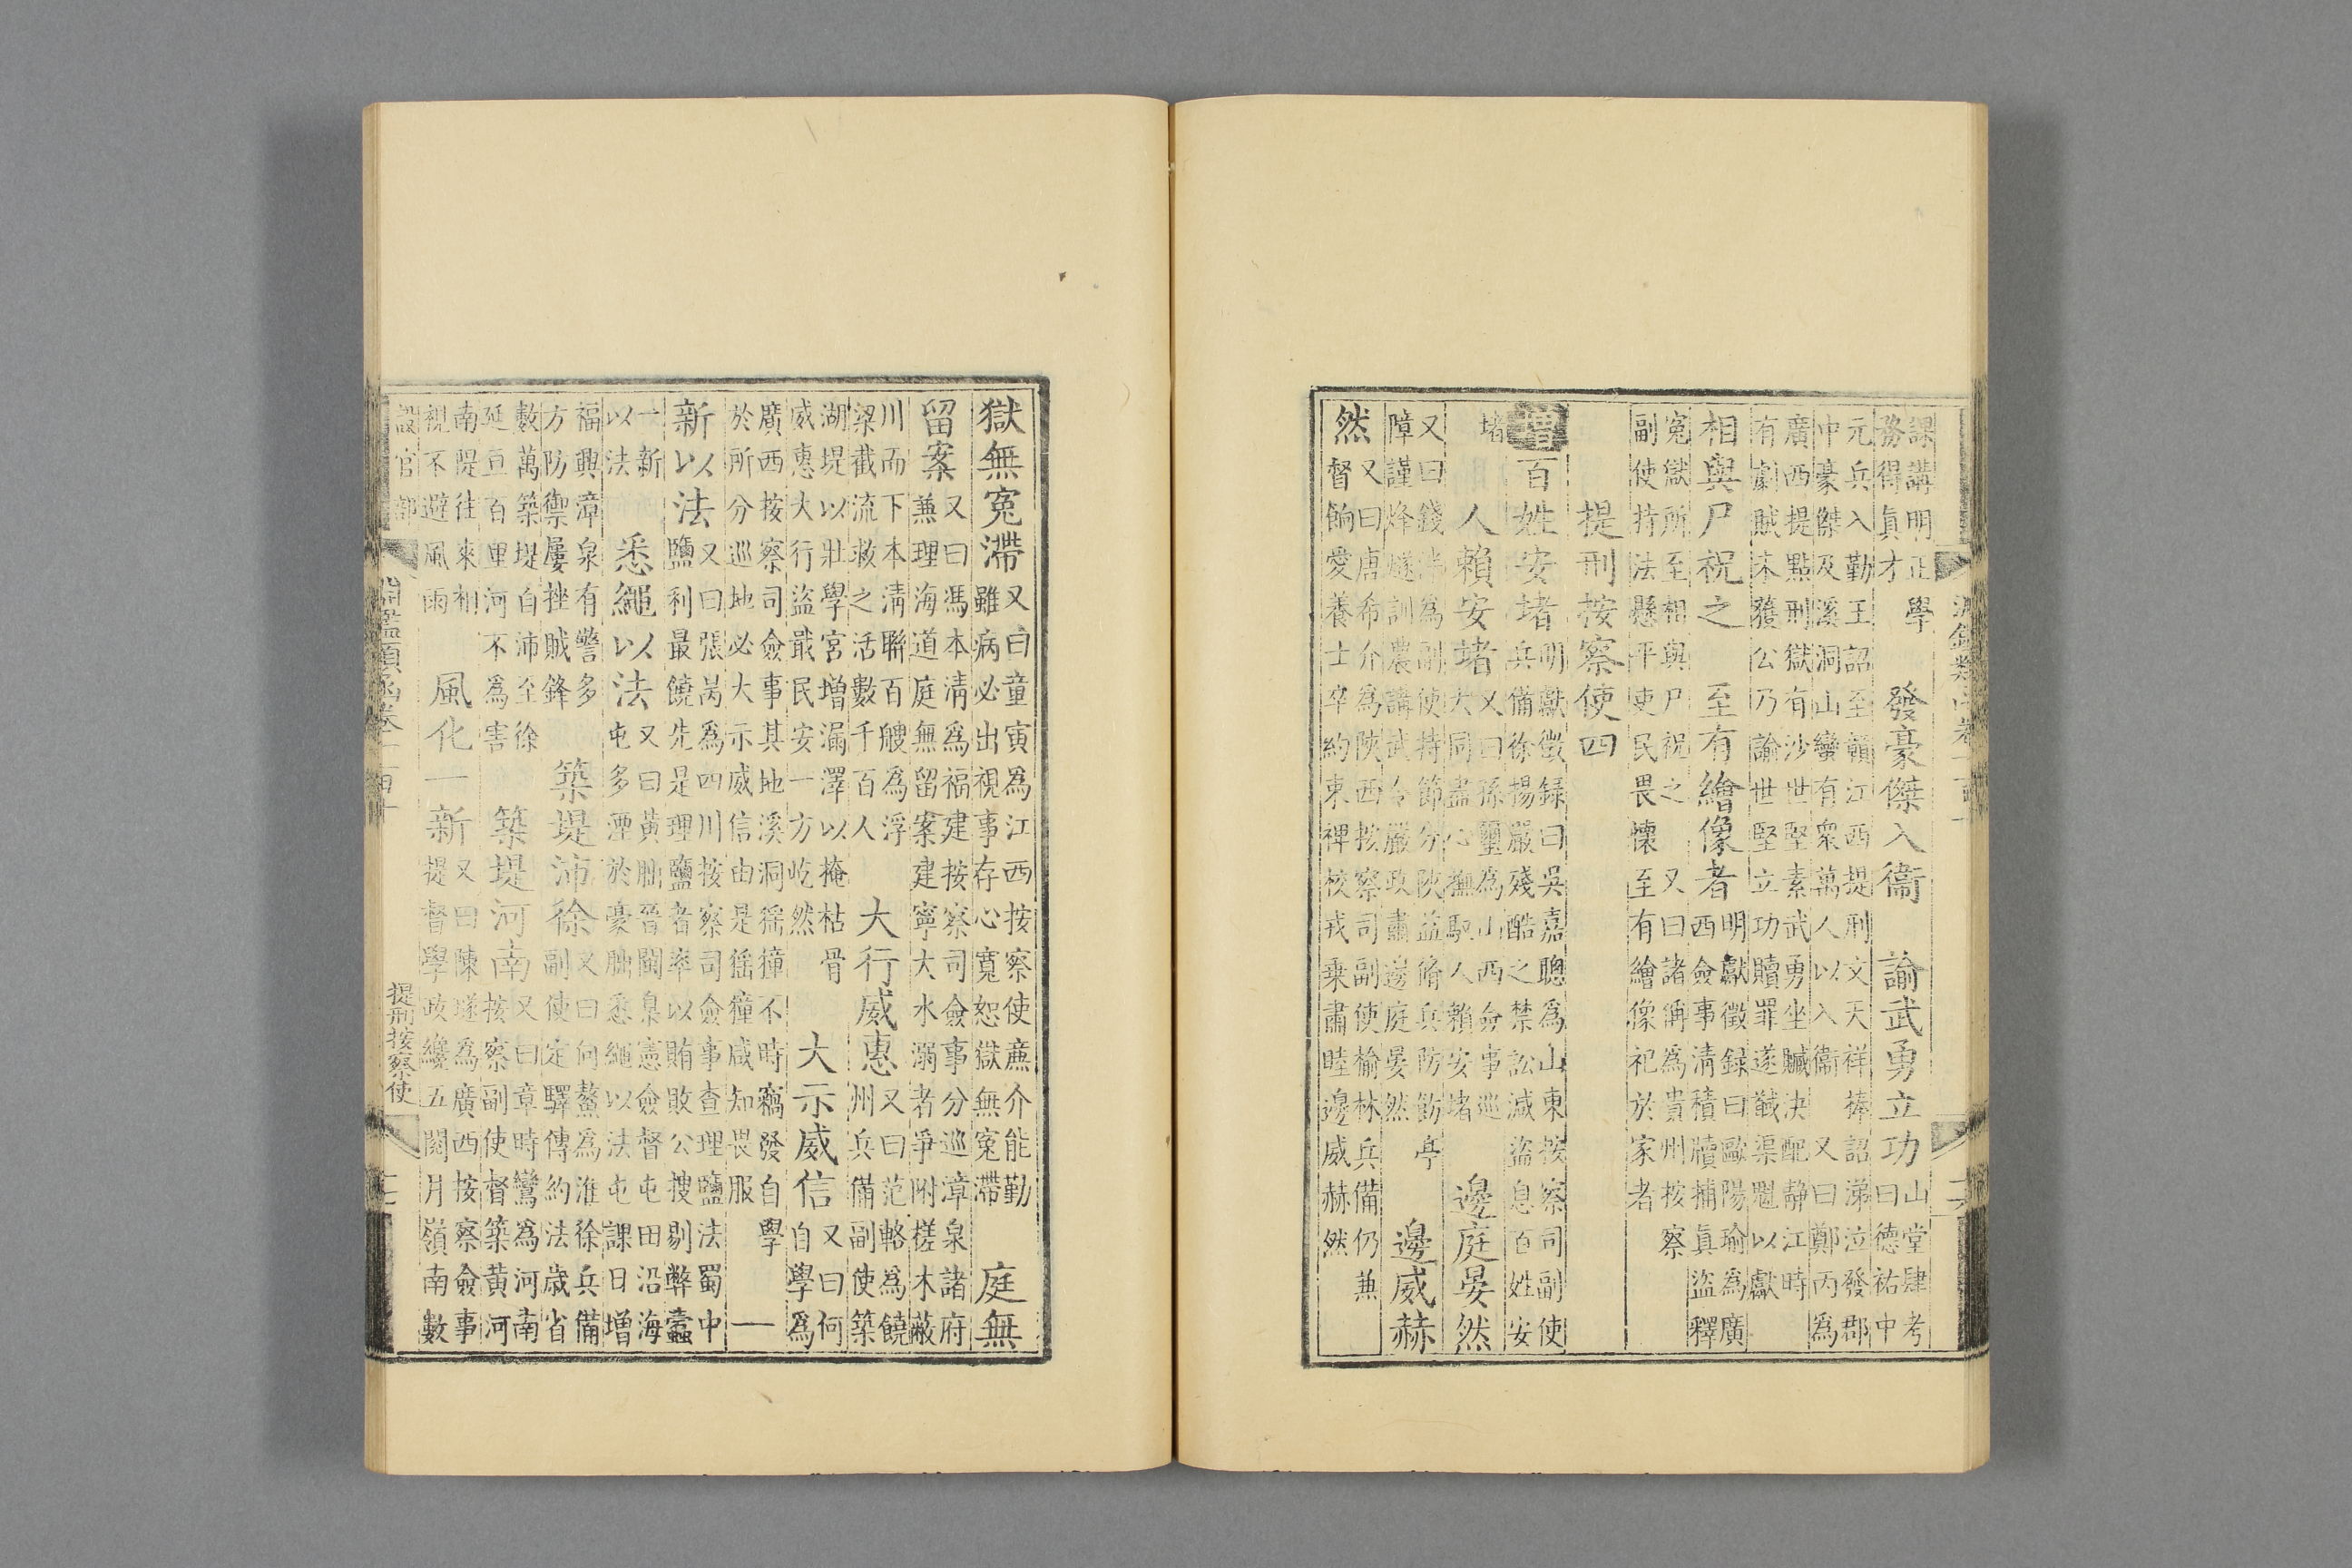 課講明正學 發豪傑入衛 諭武勇立功 山堂肆考
務得眞才 曰德祐中
元兵入勤王詔至贛江西提刑文天祥捧詔涕泣發郡
中豪傑及溪洞山蠻有衆萬人以入衛 又曰鄭丙爲
廣西提點刑獄有沙世堅素武勇坐贓決配靜江時
有劇賊未獲公乃諭世堅立功贖罪遂馘渠魁以獻
相與尸祝之 至有繪像者 明獻徵録曰歐陽瑜爲廣
西僉事清積牘捕眞盜釋
寃獄所至相與尸祝之 又曰諸偁爲貴州按察
副使持法懸平吏民畏懷至有繪像祀於家者
提刑按察使四
增百姓安堵 明獻徵録曰吳嘉聰爲山東按察司副使
兵備徐揚嚴殘酷之禁訟減盜息百姓安
堵 人賴安堵 又曰孫璽爲山西僉事巡
大同盡心撫馭人賴安堵 邊庭晏然
又曰錢泮爲副使持節分陝益脩兵防飭亭
障謹烽燧訓農講武令嚴政肅邊庭晏然 邊威赫
然 又曰唐希介爲陝西按察司副使楡林兵備仍兼
督餉愛養士卒約束裨校戎乗肅睦邊威赫然
獄無寃滯 又曰童寅爲江西按察使亷介能勤
雖病必出視事存心寛恕獄無寃滯 庭無
留案 又曰馮本清爲福建按察司僉事分巡漳泉諸府
兼理海道庭無留案建寧大水溺者爭附槎木蔽
川而下本清聯百艘爲浮
梁截流救之活數千百人 大行威惠 又曰范輅爲饒
州兵備副使築
湖堤以壯學宮增漏澤以掩枯骨
威惠大行盜戢民安一方屹然 大示威信 又曰何
自學爲
廣西按察司僉事其地溪洞猺獞不時竊發自學
於所分巡地必大示威信由是徭獞咸知畏服 一
新以法 又曰張岗爲四川按察司僉事查理鹽法蜀中
鹽利最饒先是理鹽者率以賄敗公搜剔弊蠹
一新
以法 悉繩以法 又曰黃朏晉閩臬憲僉督屯田沿海
屯多湮於豪朏悉繩以法屯課日增
福興漳泉有警多
方防禦屢挫賊鋒 築堤沛徐 又曰何鰲爲淮徐兵備
副使定驛傳約法歲省
數萬築堤自沛至徐
延亘百里河不爲害 築堤河南 又曰章時鸞爲河南
按察副使督築黃河
南隄往來相
視不避風雨 風化一新 又曰陳璲爲廣西按察僉事
提督學政纔五閱月嶺南數
設官部 淵鑑類函卷一百十 提刑按察使